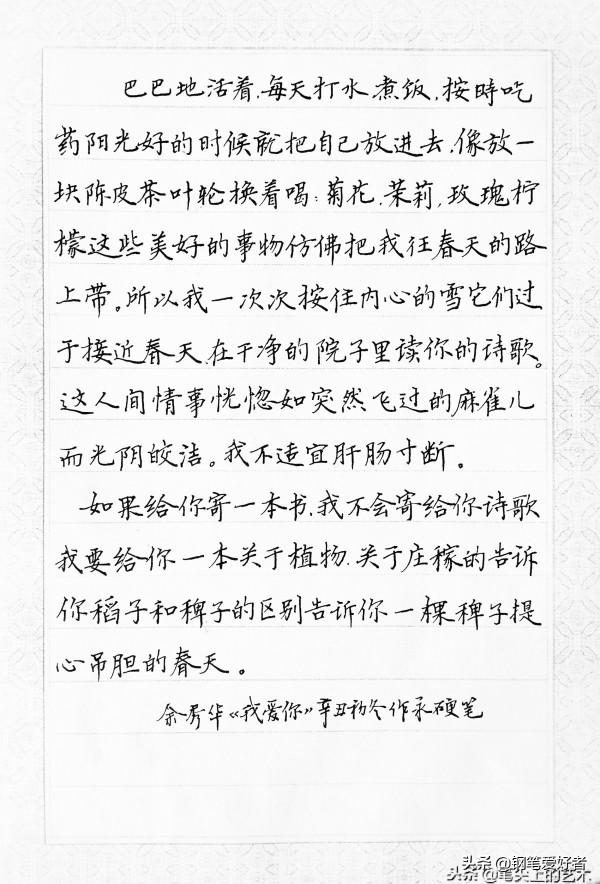 巴巴地活着,每天打水.煮饭,按時吃
药阳光好的时候就把自己放进去.像放一
块陈皮茶叶轮换着喝:菊花.茉莉,玫瑰柠
檬这些美好的事物仿佛把我往春天的路
上带。所以我一次次按住内心的雪它们过
于接近春天.在干净的院子里读你的诗歌。
这人间情事恍惚如突然飞过的麻雀儿
而光阴皎洁。我不适宜肝肠寸断。
如果给你寄一本书.我不会寄给你诗歌
我要给你一本关于植物.关于庄稼的告诉
你稻子和稗子的区别告诉你一棵稗子提
心吊胆的春天。
余秀华《我爱你》辛丑初冬作永硬笔
头条@钢笔爱好者
头条@笔尖上的艺术